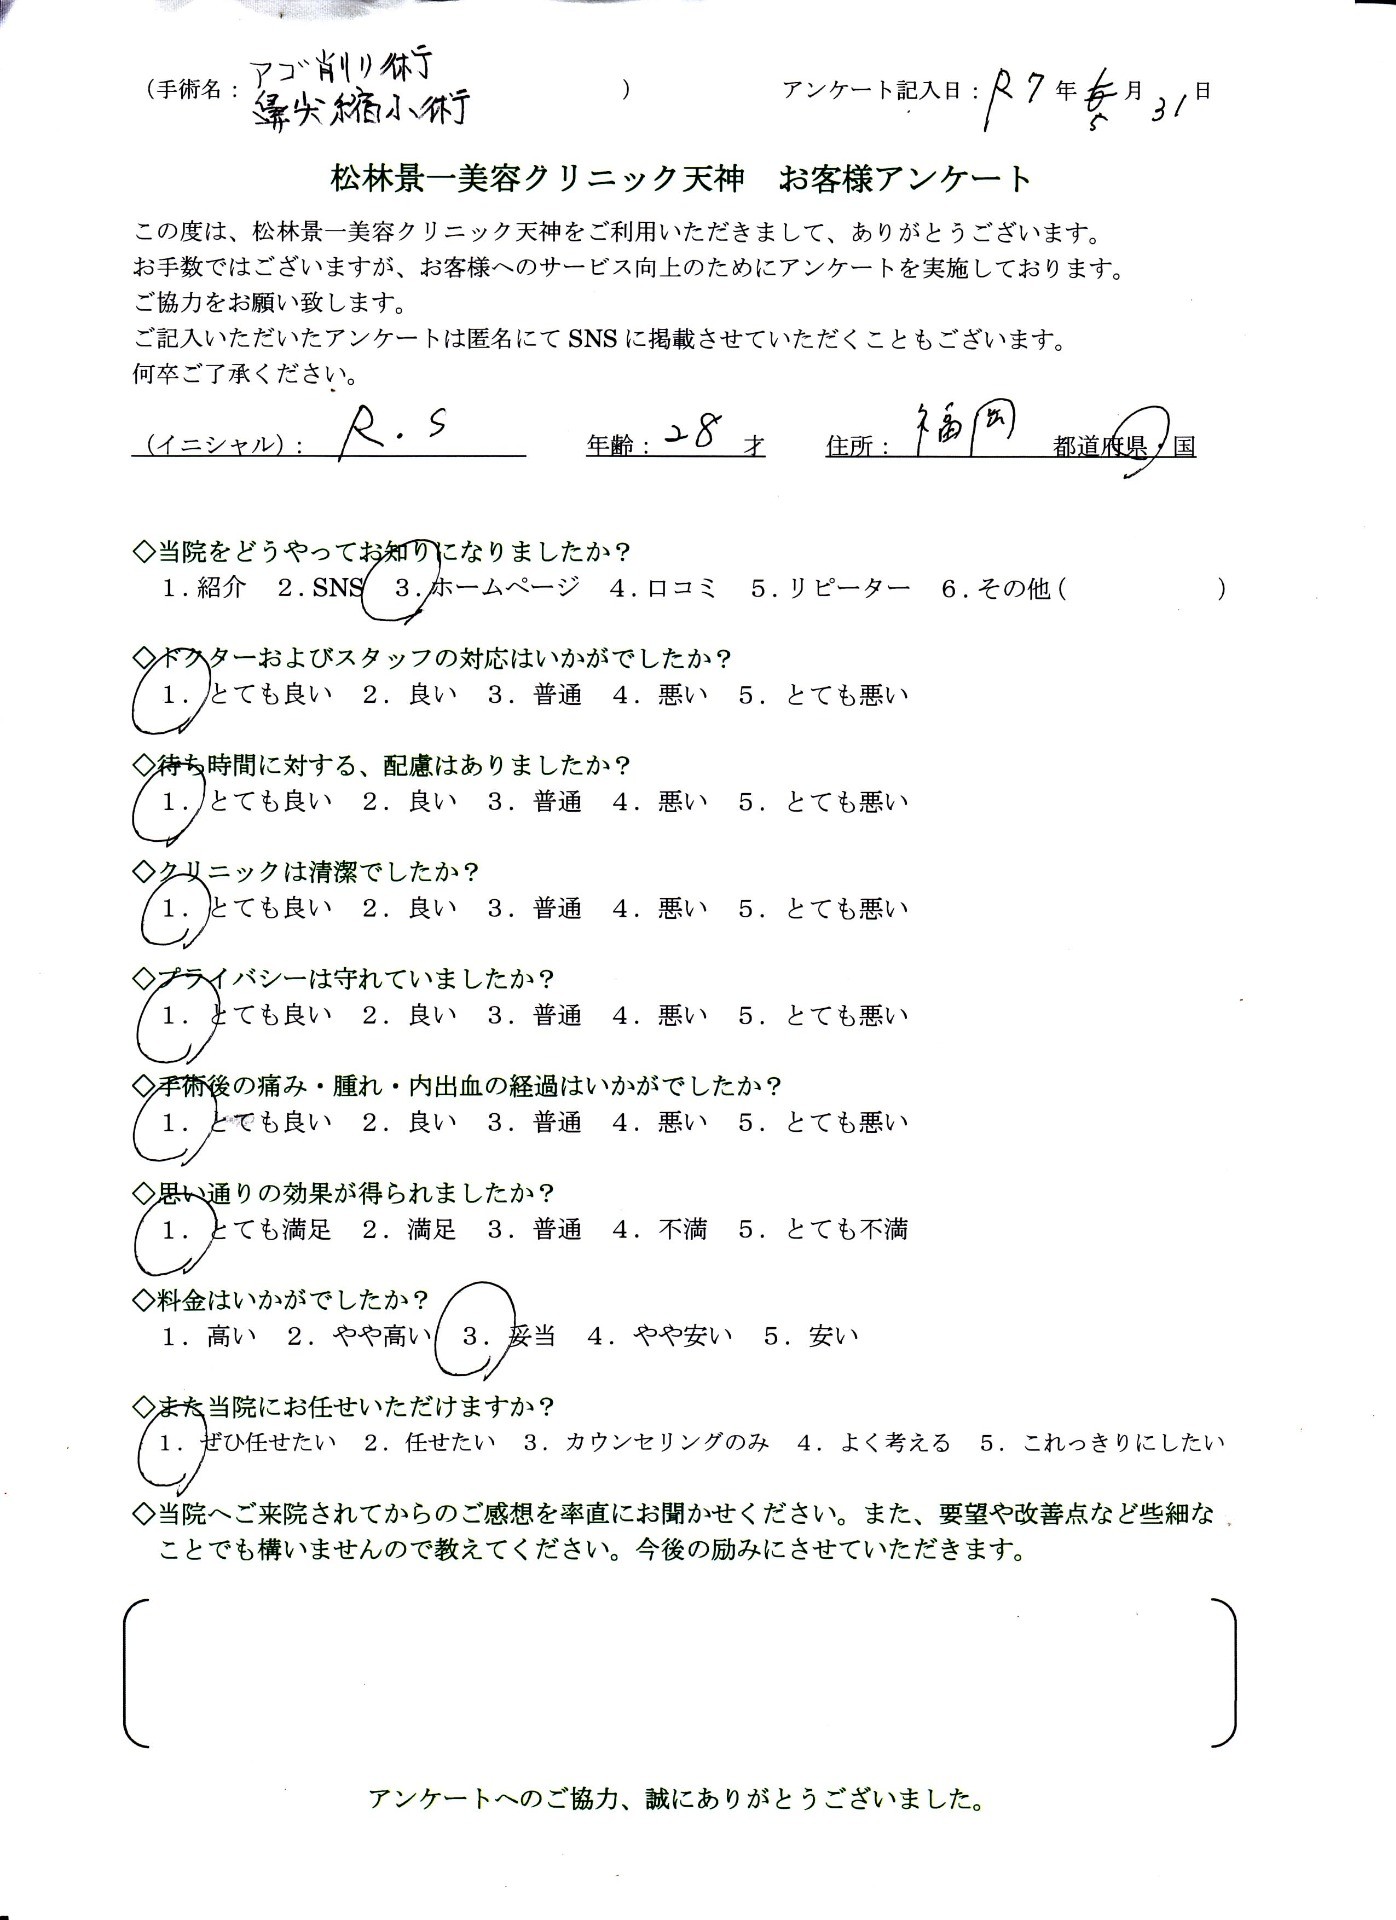 （手術名：アゴ削り術
鼻尖縮小術）
アンケート記入日：R7年 5月 31日
松林景一美容クリニック天神　お客様アンケート
この度は、松林景一美容クリニック天神をご利用いただきまして、ありがとうございます。
お手数ではございますが、お客様へのサービス向上のためにアンケートを実施しております。
ご協力をお願い致します。
ご記入いただいたアンケートは匿名にて SNS に掲載させていただくこともございます。
何卒ご了承ください。
（イニシャル）：R.S　年齢：28 才　住所：福岡　都道府県・国
◇当院をどうやってお知りになりましたか？
1.紹介　2.SNS　3.ホームページ　4.口コミ　5.リピーター　6.その他（　　　）
◇ドクターおよびスタッフの対応はいかがでしたか？
1．とても良い　2．良い　3．普通　4．悪い　5．とても悪い
◇待ち時間に対する、配慮はありましたか？
1．とても良い　2．良い　3．普通　4．悪い　5．とても悪い
◇クリニックは清潔でしたか？
1．とても良い　2．良い　3．普通　4．悪い　5．とても悪い
◇プライバシーは守れていましたか？
1．とても良い　2．良い　3．普通　4．悪い　5．とても悪い
◇手術後の痛み・腫れ・内出血の経過はいかがでしたか？
1．とても良い　2．良い　3．普通　4．悪い　5．とても悪い
◇思い通りの効果が得られましたか？
1．とても満足　2．満足　3．普通　4．不満　5．とても不満
◇料金はいかがでしたか？
1．高い　2．やや高い　3．妥当　4．やや安い　5．安い
◇また当院にお任せいただけますか？
1．ぜひ任せたい　2．任せたい　3．カウンセリングのみ　4．よく考える　5．これっきりにしたい
◇当院へご来院されてからのご感想を率直にお聞かせください。また、要望や改善点など些細な
ことでも構いませんので教えてください。今後の励みにさせていただきます。
アンケートへのご協力、誠にありがとうございました。